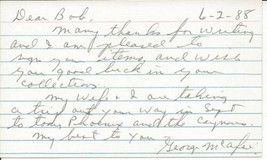 Dear Bob, 6-2-88
Many thanks for writing
and I am pleased to
sign your items and wish
you good luck in your
collection.
My Wife & I are taking
a trip out your way in Sept
to tour Phoenix and the Canyons.
My best to you
George McAfee